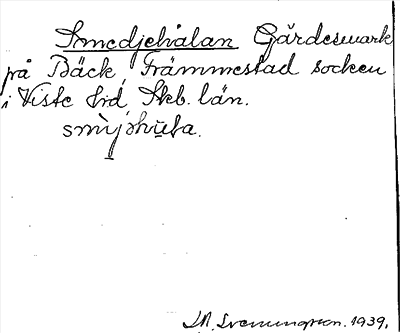 Smedjehålan Gärdesmark
på Bäck, Främmestad socken
i Viste hd, Skb. län.
1939.